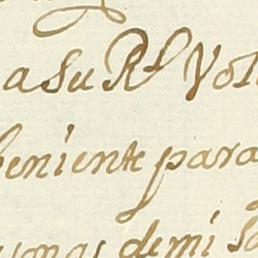 a Su Rl Vol
beniente para
de mi